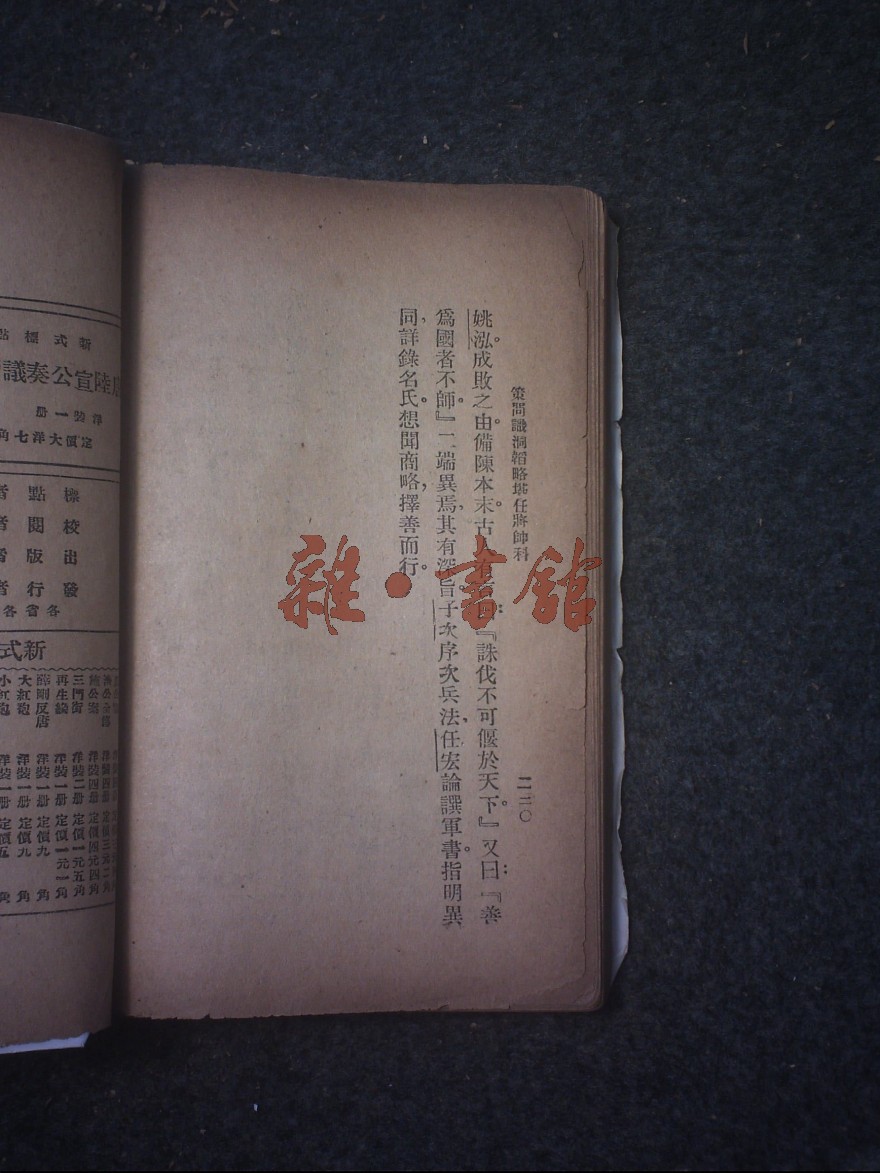 策問識洞韜略堪任將帥科
二二〇
姚泓。成敗之由。備陳本末。古人有言曰:『誅伐不可偃於天下。』又曰:『善
爲國者不師。』二端異焉,其有深旨。子次序次兵法,任宏論譔軍書。指明異
同,詳錄名氏,想聞商略,擇善而行。
雜·書館
新式標點
陸宣公奏議
洋裝一册
定價大洋七角
標點者
校閱者
出版者
發行者
各省各
新式
陸公案 洋裝四册 定價四元四角
三門街 洋裝二册 定價一元五角
再生緣 洋裝一册 定價一元一角
薛剛反唐 洋裝一册 定價九角
大紅袍 洋裝一册 定價九角
小紅袍 洋裝一册 定價五角